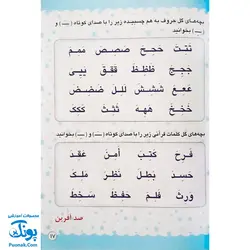 بچه‌های گل حروف به هم چسبیده زیر را با صدای کوتاه (ـَـ) و
(ـِـ) بخوانید.
تتت حجح صصص ممم
ججج ظظظ ققق ییی
ععغ ششش للل ضضض
خخخ ههه ثثث ککک
بچه‌های گل کلمات قرآنی زیر را با صدای کوتاه (ـَـ) و (ـِـ) بخوانید.
فرح کتب أمن عقد
حسد بطل نظر ملک
ورث فلم حفظ سخط
صد آفرین
۱۷
محصولات آموزشی
پونک
Poonak.com